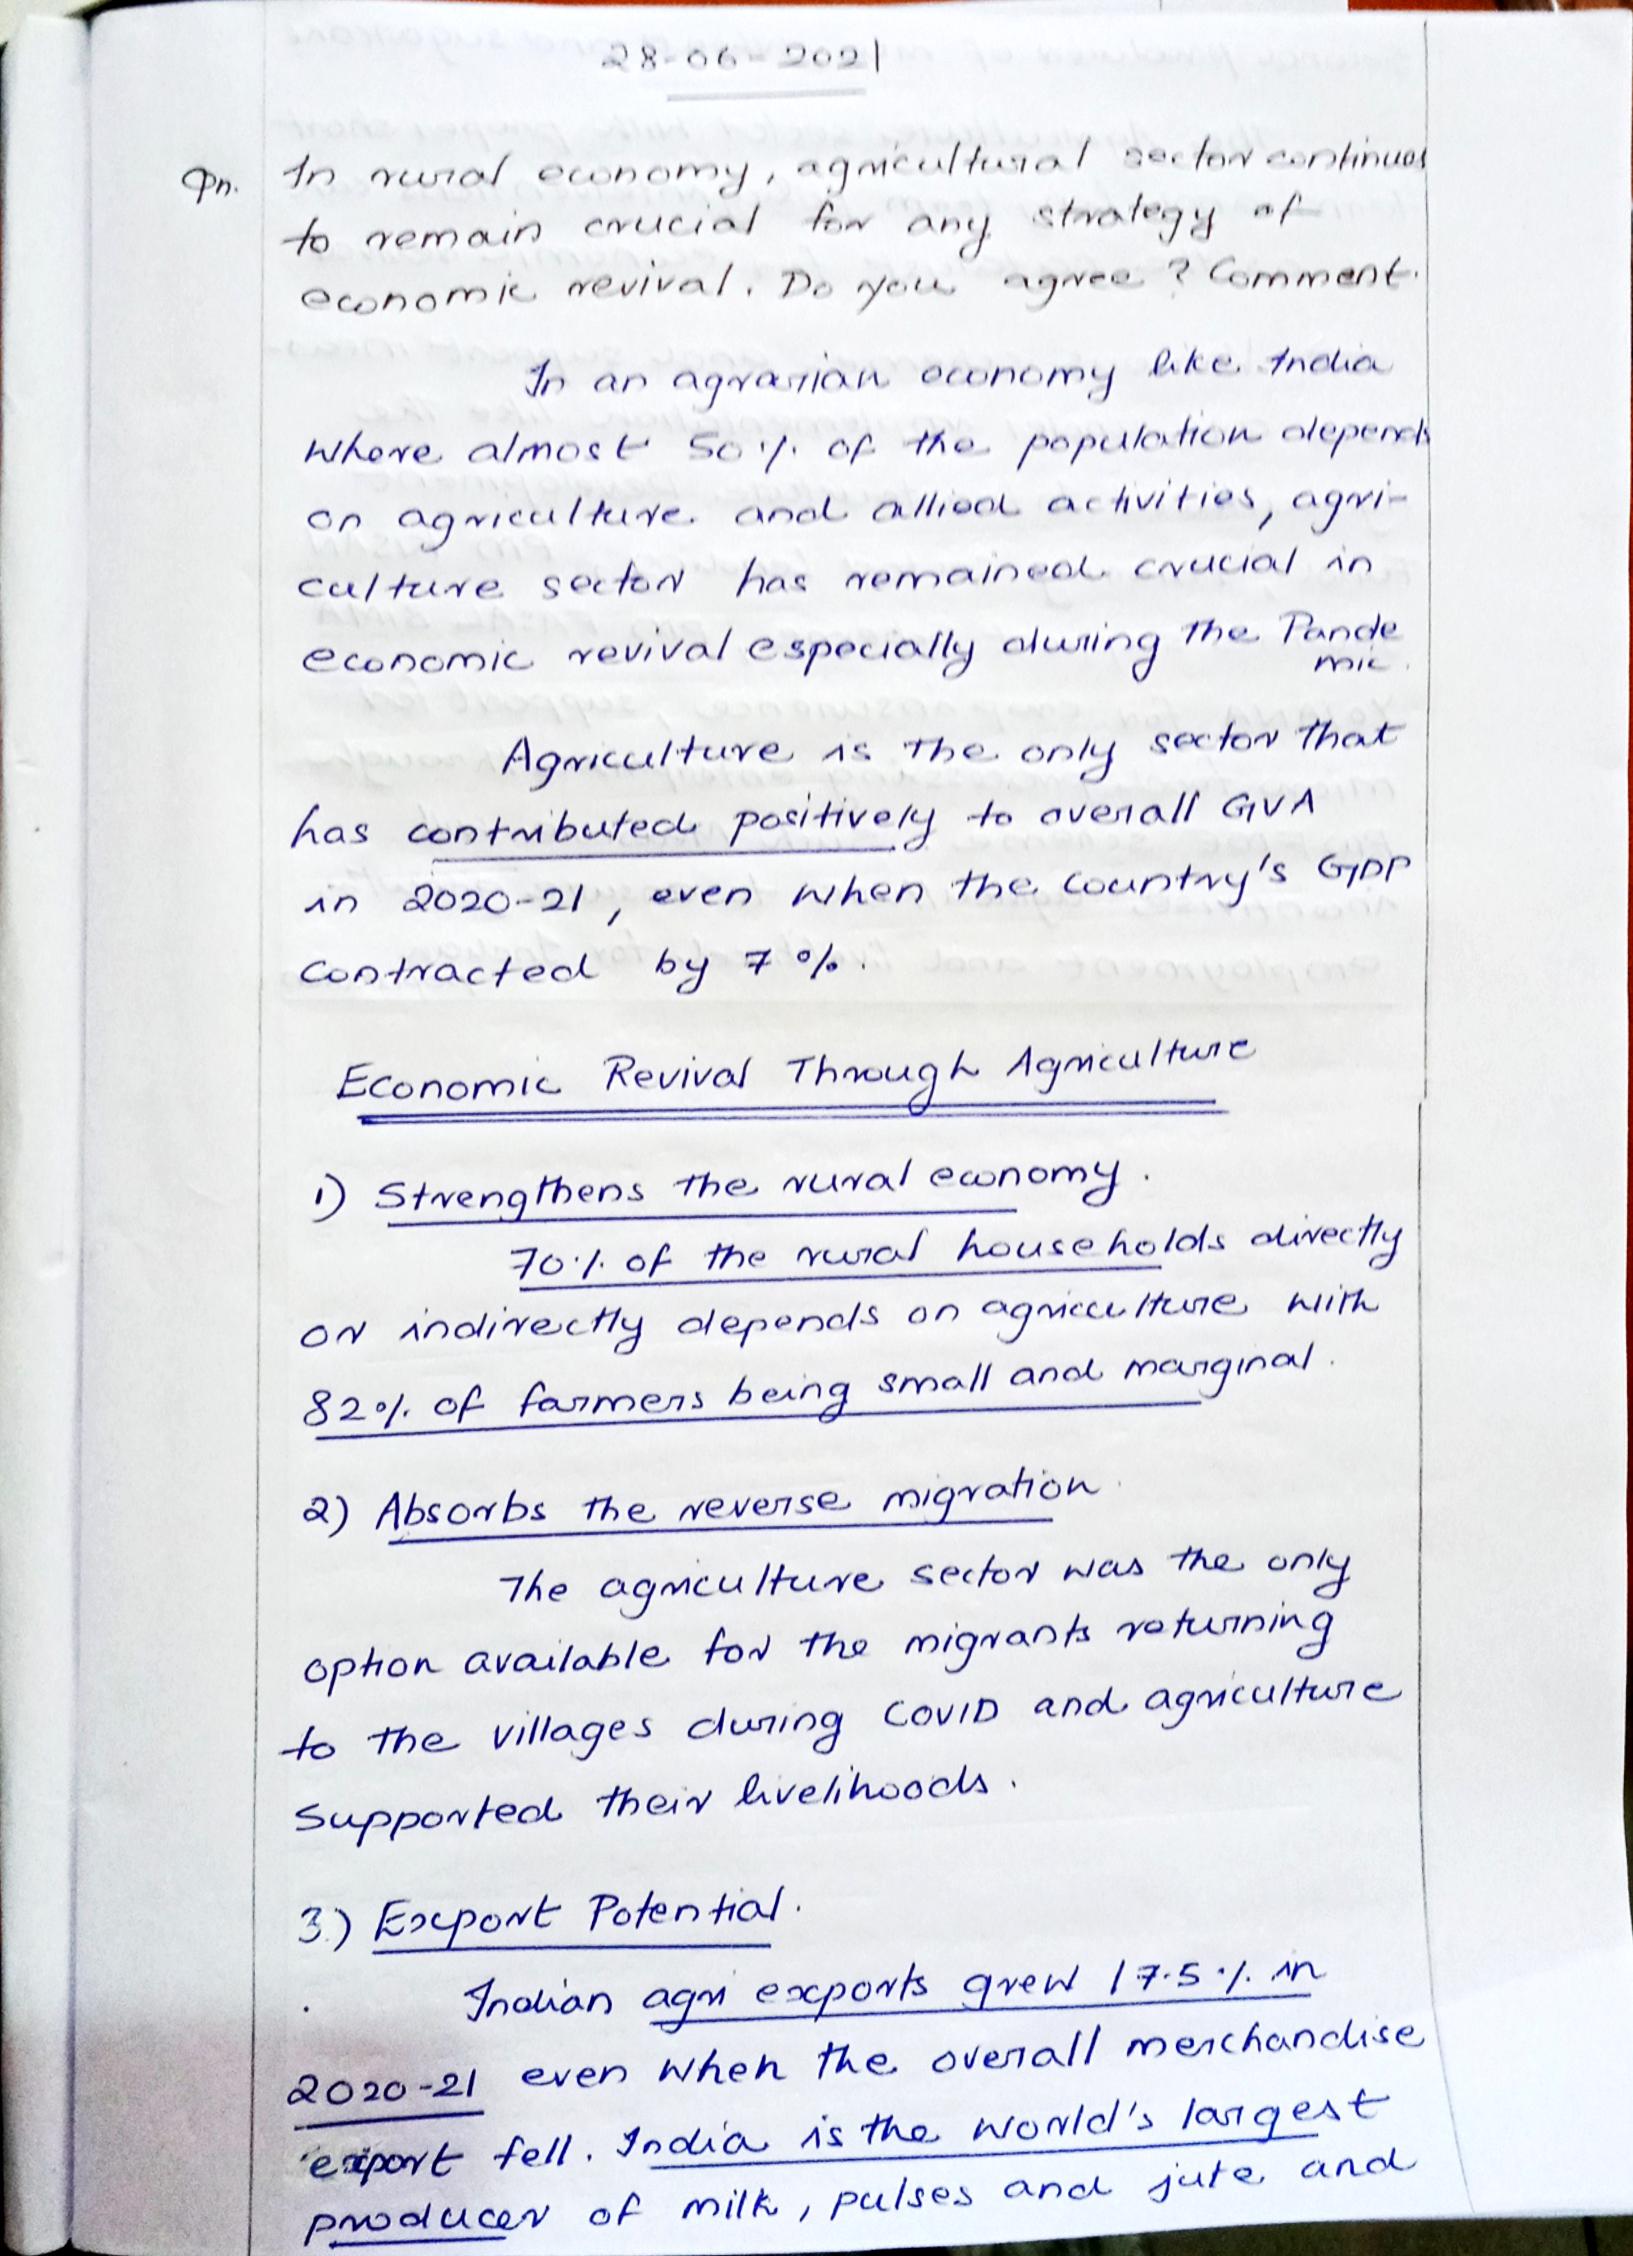 28-06-2021
Qn. In rural economy, agricultural sector continues
to remain crucial for any strategy of
economic revival. Do you agree? Comment.
In an agrarian economy like India
where almost 50% of the population depends
on agriculture and allied activities, agri-
culture sector has remained crucial in
economic revival especially during the Pande
mic.
Agriculture is the only sector that
has contributed positively to overall GVA
in 2020-21, even when the country's GDP
contracted by 7%.
Economic Revival Through Agriculture
1) Strengthens the rural economy.
70% of the rural households directly
or indirectly depends on agriculture with
82% of farmers being small and marginal.
2) Absorbs the reverse migration.
The agriculture sector was the only
option available for the migrants returning
to the villages during COVID and agriculture
supported their livelihoods.
3.) Export Potential.
Indian agri exports grew 17.5% in
2020-21 even when the overall merchandise
export fell. India is the world's largest
producer of milk, pulses and jute and